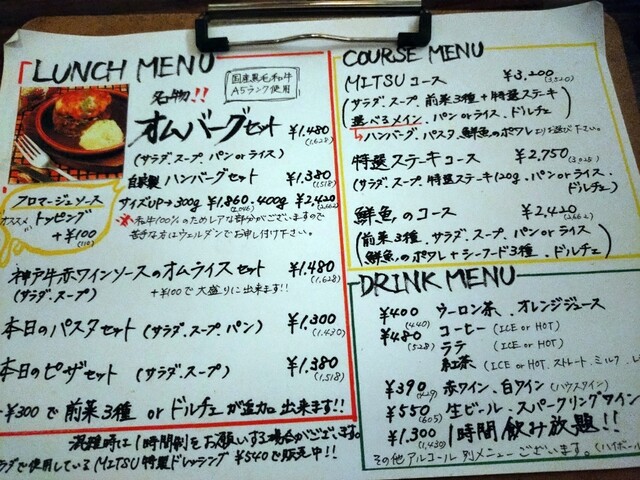 LUNCH MENU
国産黒毛和牛
A5ランク使用
名物!!
オムバーグセット ¥1,480
(サラダ、スープ、パン or ライス) (1,628)
自家製 ハンバーグセット ¥1,380
(1,518)
サイズUP→300g ¥1,860、400g ¥2,420
(2,046) (2,662)
※和牛100%のためレアな部分がございますので
苦手な方はウェルダンでお申し付け下さい。
フロマージュソース
オススメ トッピング
+¥100
(110)
神戸牛赤ワインソースのオムライスセット ¥1,480
(サラダ、スープ) +¥100で大盛りに出来ます!! (1,628)
本日のパスタセット (サラダ、スープ、パン) ¥1,300
(1,430)
本日のピザセット (サラダ、スープ) ¥1,380
(1,518)
+¥300で前菜3種 or ドルチェが追加出来ます!!
混雑時は1時間制をお願いする場合がございます。
ラダで使用しているMITSU特製ドレッシング ¥540で販売中!!
COURSE MENU
MITSUコース ¥3,200
(3,520)
(サラダ、スープ、前菜3種+特選ステーキ
選べるメイン、パン or ライス、ドルチェ)
→ハンバーグ、パスタ、鮮魚のポワレよりお選び下さい。
特選ステーキコース ¥2,750
(3,025)
(サラダ、スープ、特選ステーキ120g、パン or ライス、
ドルチェ)
鮮魚のコース ¥2,420
(2,662)
(前菜3種、サラダ、スープ、パン or ライス
鮮魚のポワレ+シーフード3種、ドルチェ)
DRINK MENU
¥400 ウーロン茶、オレンジジュース
(440)
¥480 コーヒー (ICE or HOT)
(528) ラテ (ICE or HOT)
紅茶 (ICE or HOT、ストレート、ミルク、レ
¥390 赤ワイン、白ワイン (ハウスワイン)
(429)
¥550 生ビール、スパークリングワイン
(605)
¥1,300 1時間飲み放題!!
(1,430)
その他アルコール別メニューございます。(ハイボール